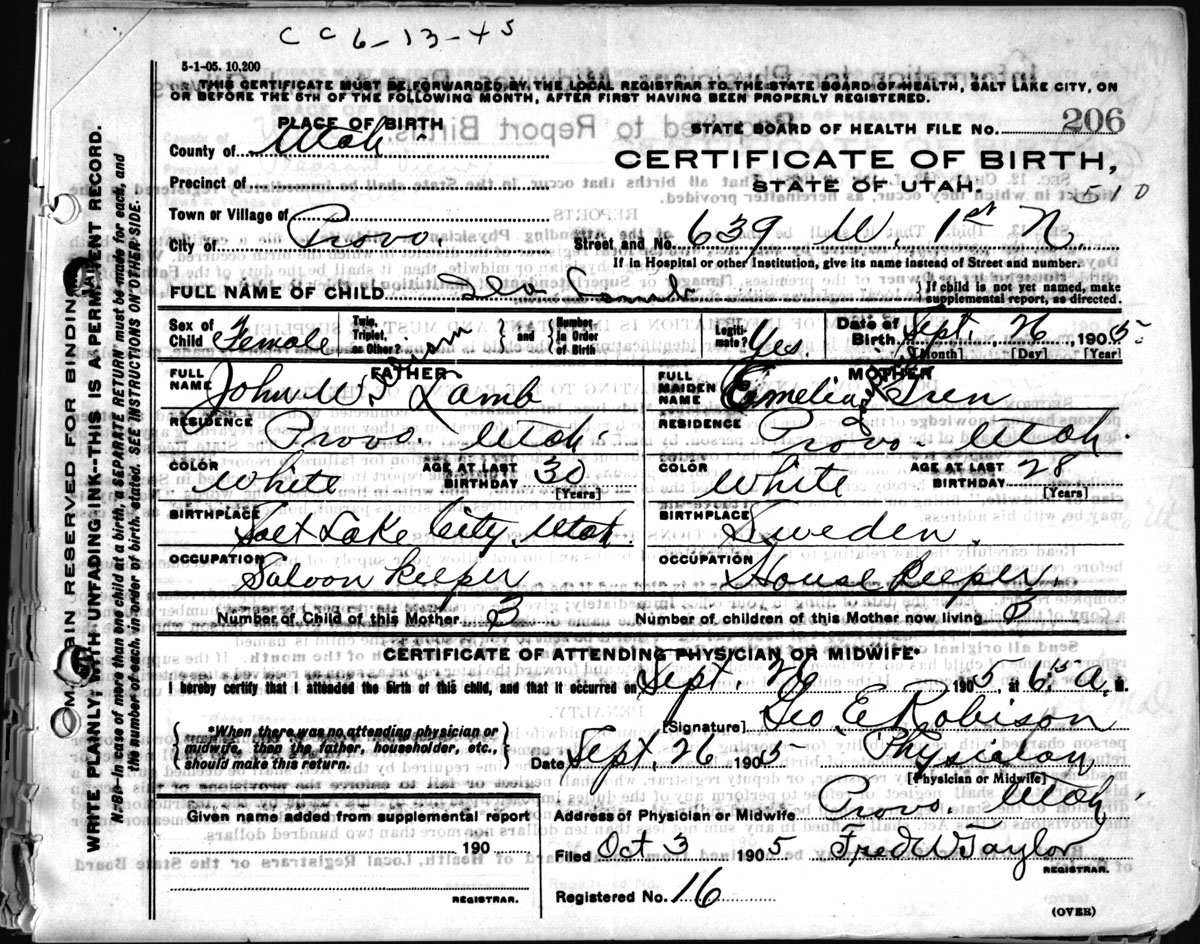 C C 6-13-45
5-1-05. 10,200
THIS CERTIFICATE MUST BE FORWARDED BY THE LOCAL REGISTRAR TO THE STATE BOARD OF HEALTH, SALT LAKE CITY, ON
OR BEFORE THE 5TH OF THE FOLLOWING MONTH, AFTER FIRST HAVING BEEN PROPERLY REGISTERED.
PLACE OF BIRTH
STATE BOARD OF HEALTH FILE NO. 206
County of Utah
CERTIFICATE OF BIRTH,
Precinct of
STATE OF UTAH.
510
Town or Village of
City of Provo.
Street and No. 639 W. 1st N
If in Hospital or other Institution, give its name instead of Street and number.
FULL NAME OF CHILD Lamb
If child is not yet named, make supplemental report, as directed.
Sex of Child Female
Twin, Triplet, or Other?
and
Number in Order of Birth
Legitimate? Yes.
Date of Birth Sept. 26, 1905.
[Month] [Day] [Year]
FATHER
MOTHER
FULL NAME John W. Lamb
FULL MAIDEN NAME Emelia
RESIDENCE Provo. Utah
RESIDENCE Provo. Utah.
COLOR White
AGE AT LAST BIRTHDAY 30
[Years]
COLOR White
AGE AT LAST BIRTHDAY 28
[Years]
BIRTHPLACE Salt Lake City, Utah.
BIRTHPLACE Sweden.
OCCUPATION Saloon Keeper
OCCUPATION House Keeper.
Number of Child of this Mother 3
Number of children of this Mother now living 3
CERTIFICATE OF ATTENDING PHYSICIAN OR MIDWIFE*
I hereby certify that I attended the birth of this child, and that it occurred on Sept. 26 1905, at 6:15 A. M.
*When there was no attending physician or midwife, then the father, householder, etc., should make this return.
[Signature] Geo E Robison
Date Sept, 26 1905 Physician,
[Physician or Midwife]
Given name added from supplemental report
Address of Physician or Midwife Provo. Utah
190
Filed Oct 3 1905 Fred W Taylor
REGISTRAR.
REGISTRAR.
Registered No. 16
(OVER)
MARGIN RESERVED FOR BINDING
WRITE PLAINLY, WITH UNFADING INK--THIS IS A PERMANENT RECORD.
N. B.--In case of more than one child at a birth, a SEPARATE RETURN must be made for each, and
the number of each, in order of birth, stated. SEE INSTRUCTIONS ON OTHER SIDE.